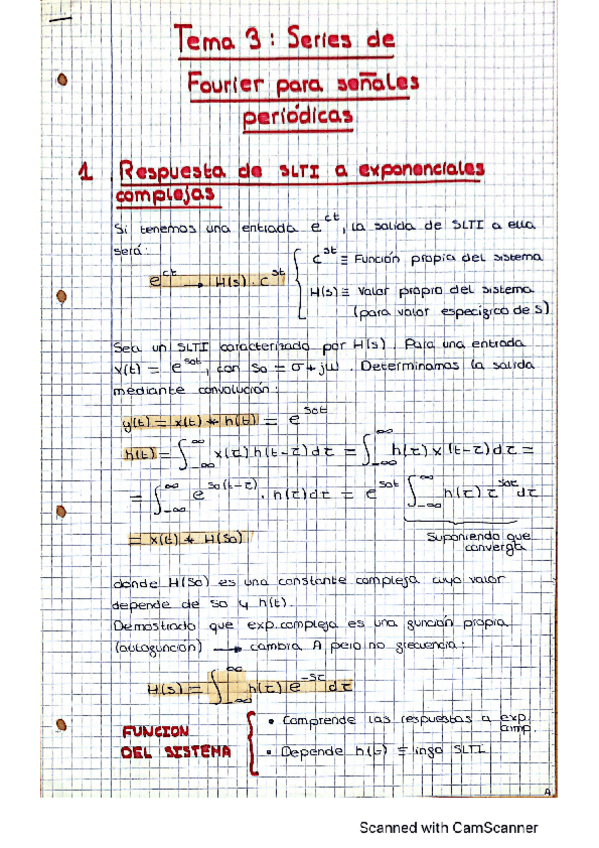 Tema 3: Series de
Fourier para señales
periódicas
1. Respuesta de SLTI a exponenciales
complejas
Si tenemos una entrada e^ct, la salida de SLTI a ella
será:
e^ct → H(s) · c^st
c^st ≡ Función propia del sistema
H(s) ≡ Valor propio del sistema
(para valor especifico de s)
Sea un SLTI caracterizado por H(s). Para una entrada
x(t) = e^sot, con so = σ + jω. Determinamos la salida
mediante convolución:
y(t) = x(t) * h(t) = e^sot
h(t) = ∫_-∞^∞ x(τ) h(t-τ) dτ = ∫_-∞^∞ h(τ) x(t-τ) dτ =
= ∫_-∞^∞ e^so(t-τ) · h(τ) dτ = e^sot ∫_-∞^∞ h(τ) τ^soτ dτ
= x(t) * H(so)
Suponiendo que
converga
donde H(so) es una constante compleja cuyo valor
depende de so y h(t).
Demostrado que exp.compleja es una función propia
(autofunción) → cambia A pero no frecuencia:
H(s) = ∫_-∞^∞ h(τ) e^-sτ dτ
FUNCION
DEL SISTEMA
• Comprende las respuestas a exp.
comp.
• Depende h(s) ≡ info SLTI
A
Scanned with CamScanner